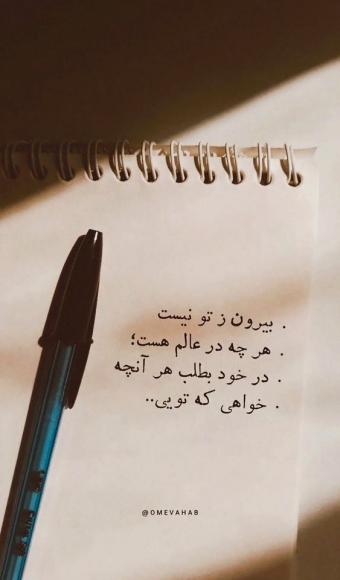 . بیرون ز تو نیست
. هر چه در عالم هست؛
. در خود بطلب هر آنچه
. خواهی که تویی..
@OMEVAHAB